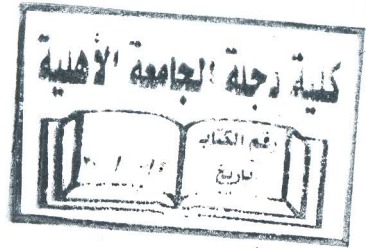 كلية دجلة الجامعة الأهلية
رقم الكتاب
تاريخ